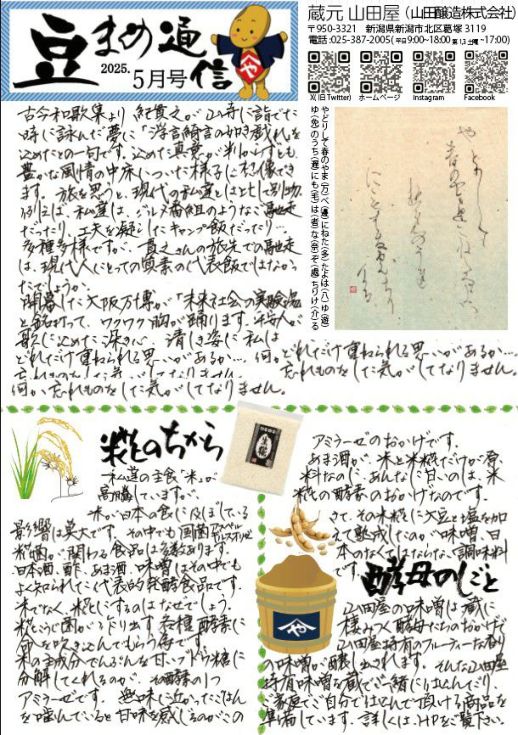 豆まめ通信
2025. 5月号
蔵元 山田屋 (山田醸造株式会社)
〒950-3321 新潟県新潟市北区葛塚 3119
電話:025-387-2005( 平日 9:00~18:00 第1,3 土曜 ~17:00)
X(旧 Twitter) ホームページ Instagram Facebook
古今和歌集より 紀貫之が 山寺に詣でた
時に詠んだ
込めたとの一句です。込めた真意が判からずとも
豊かな風情の中床についた様子に想像でき
ます。旅を思うと、現代の私達とは比して別物
例えば、私達は、グルメ番組のようなご馳走
だったり、工夫を凝らしたキャンプ飯だったり…
多種多様ですが、貫之さんの旅先での馳走
は、現代人にとっての質素の代表飯ではなか
ったでしょうか。
開幕した大阪万博が「未来社会の実験場」
と銘打って、ワクワク胸が踊ります。
歌に込めた深さ 清しき姿に私は
どれだけ重ねられる思いがあるか…何か
忘れものをした気がしてなりません。
やどりして春のやま(万)べ(遍)にねた(多)たよは(八)ゆ(遊)
め(免)のうち(遅)にも(毛)は(者)な(奈)ぞ(處)ちりけ(介)る
どれだけ重ねられる思いがあるか…
忘れものをした気がしてなりません。
何か忘れものをした気がしてなりません。
糀のちから
私達の主食"米"が
高騰していますが、
米が日本の食に及ぼしている
影響は莫大です。その中でも国菌アスペルギルスオリゼー
糀菌が関わる食品は多数あります。
日本酒、酢、あま酒、味噌はその中でも
よく知られた代表的発酵食品です。
米でなく、糀にするのはなぜでしょう。
糀こうじ菌がつくり出す各種酵素に
命を吹き込んでもらう為です。
米の主成分でんぷんを甘い、ブドウ糖に
分解してくれるのが、その酵素の1つ
アミラーゼです。無味に近かったごはん
を噛んでいると甘味を感じるのがこの
アミラーゼのおかげです。
あま酒が、米と米糀だけが原
料なのに、あんなに甘いのは、米
糀の酵素のおかげなのです。
さて、その米糀に大豆と塩を加
えて熟成したのが味噌、日
本のなくてはならない、調味料
です。
酵母のしごと
山田屋の味噌は蔵に
棲みつく酵母たちのおかげで
山田屋独特のフルーティーな香り
の味噌が醸し出されます。そんな山田屋
特有味噌を蔵でご一緒に仕込んだり、
ご家庭でご自分で仕込んで頂ける商品を
準備しています。詳しくは、HPをご覧下さい。